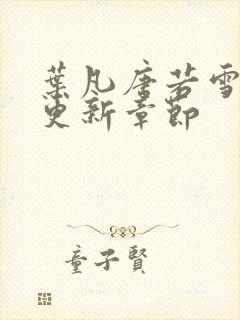 葉凡唐若雪
更新章節
童子賢